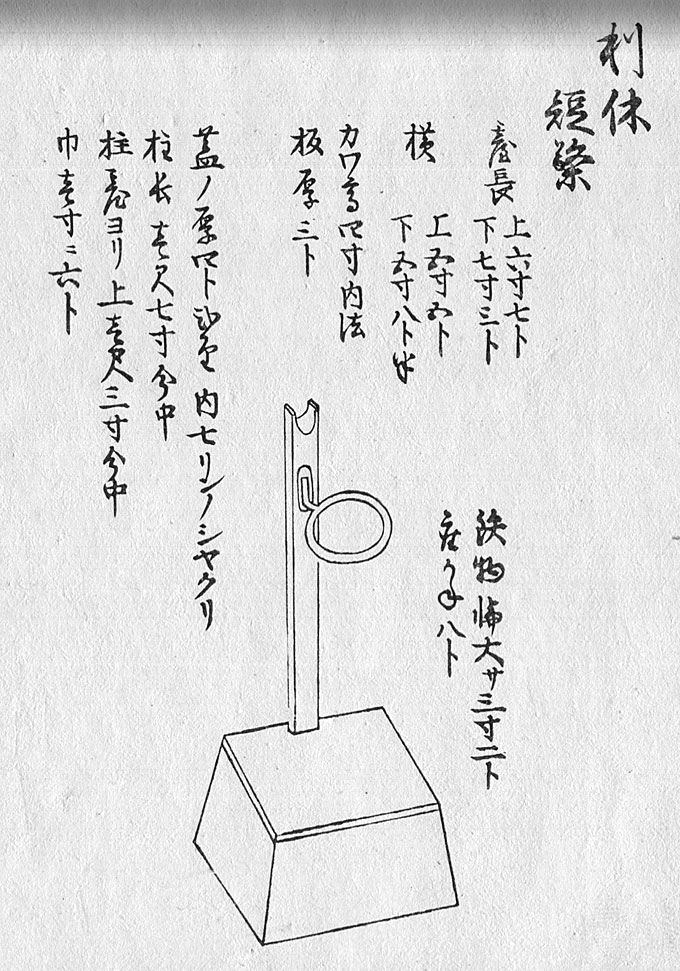 利休
短檠
臺長 上六寸七ト
下七寸三ト
横 上五寸五ト
下五寸八ト半
カワ高四寸内法
板厚三ト
蓋ノ厚四ト 内七リンノシャクリ
柱長壱尺七寸今中
柱臺ヨリ上壱尺三寸今中
巾壱寸ニ六ト
鉄物 大サ三寸二ト
座 八ト